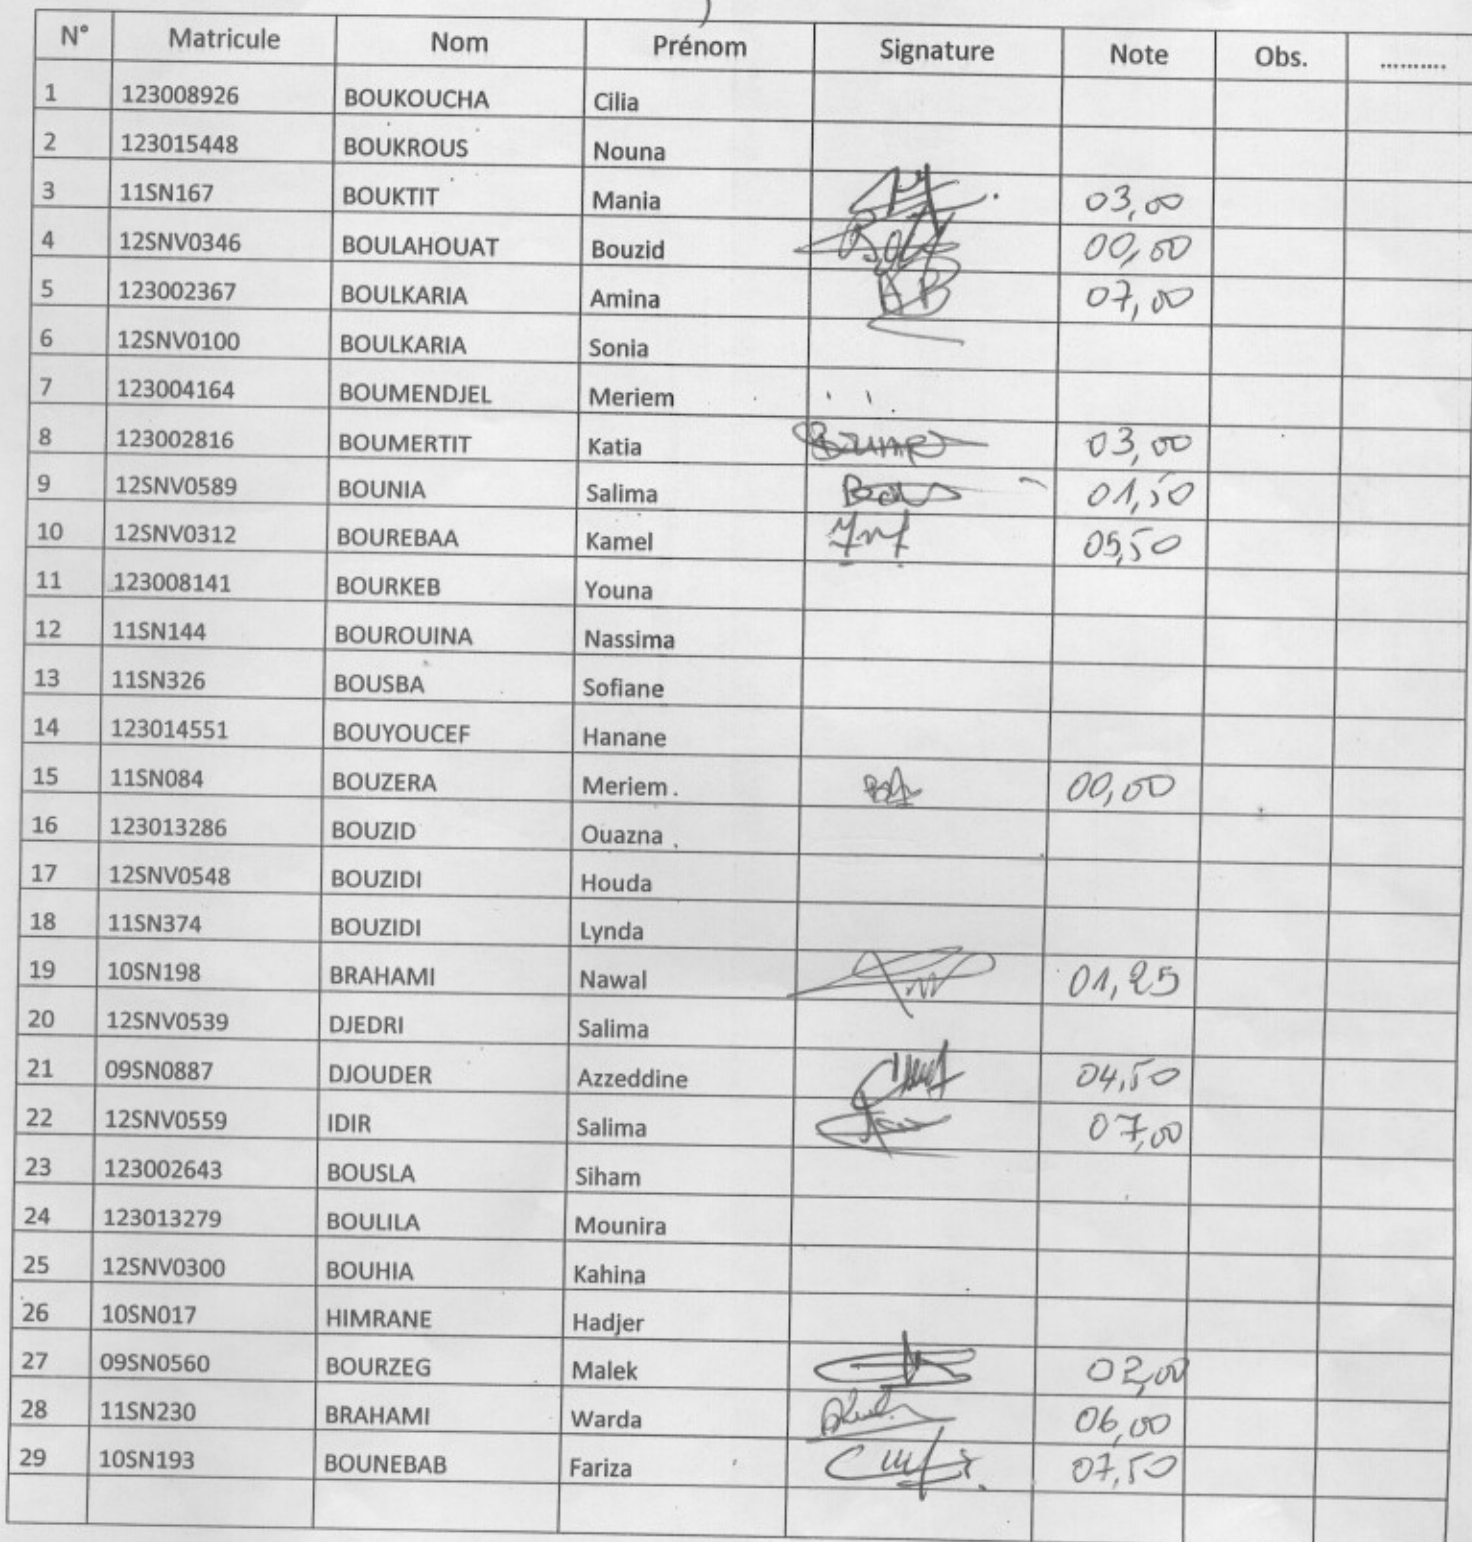 N° Matricule Nom Prénom Signature Note Obs. ..........
1 123008926 BOUKOUCHA Cilia
2 123015448 BOUKROUS Nouna
3 11SN167 BOUKTIT Mania 03,00
4 12SNV0346 BOULAHOUAT Bouzid 00,00
5 123002367 BOULKARIA Amina 07,00
6 12SNV0100 BOULKARIA Sonia
7 123004164 BOUMENDJEL Meriem
8 123002816 BOUMERTIT Katia 03,00
9 12SNV0589 BOUNIA Salima 01,50
10 12SNV0312 BOUREBAA Kamel 05,50
11 123008141 BOURKEB Youna
12 11SN144 BOUROUINA Nassima
13 11SN326 BOUSBA Sofiane
14 123014551 BOUYOUCEF Hanane
15 11SN084 BOUZERA Meriem 00,00
16 123013286 BOUZID Ouazna
17 12SNV0548 BOUZIDI Houda
18 11SN374 BOUZIDI Lynda
19 10SN198 BRAHAMI Nawal 01,25
20 12SNV0539 DJEDRI Salima
21 09SN0887 DJOUDER Azzeddine 04,50
22 12SNV0559 IDIR Salima 07,00
23 123002643 BOUSLA Siham
24 123013279 BOULILA Mounira
25 12SNV0300 BOUHIA Kahina
26 10SN017 HIMRANE Hadjer
27 09SN0560 BOURZEG Malek
28 11SN230 BRAHAMI Warda 06,00
29 10SN193 BOUNEBAB Fariza 07,50